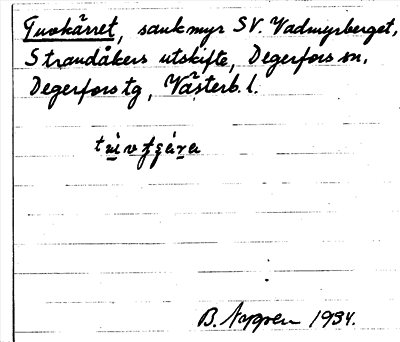 Tuvkärret, sank myr SV. Vadmyrberget,
Strandåkers utskifte, Degerfors sn.
Degerfors tg, Västerb. l.
B. Nygren 1934.